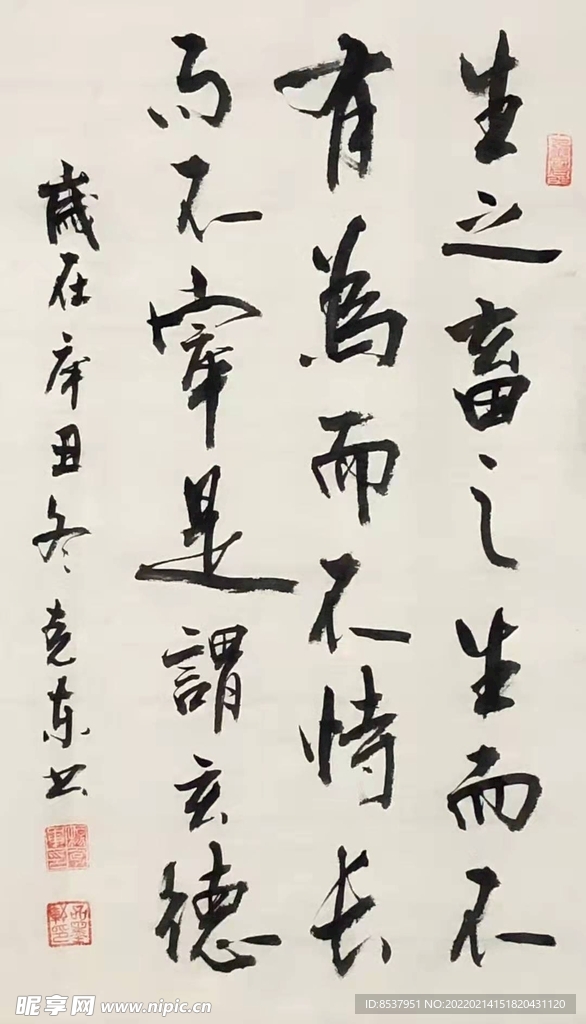 生之畜之生而不
有為而不恃长
而不宰是謂玄德
歲在辛丑冬克东书
昵享网 www.nipic.cn
ID:8537951 NO:20220214151820431120